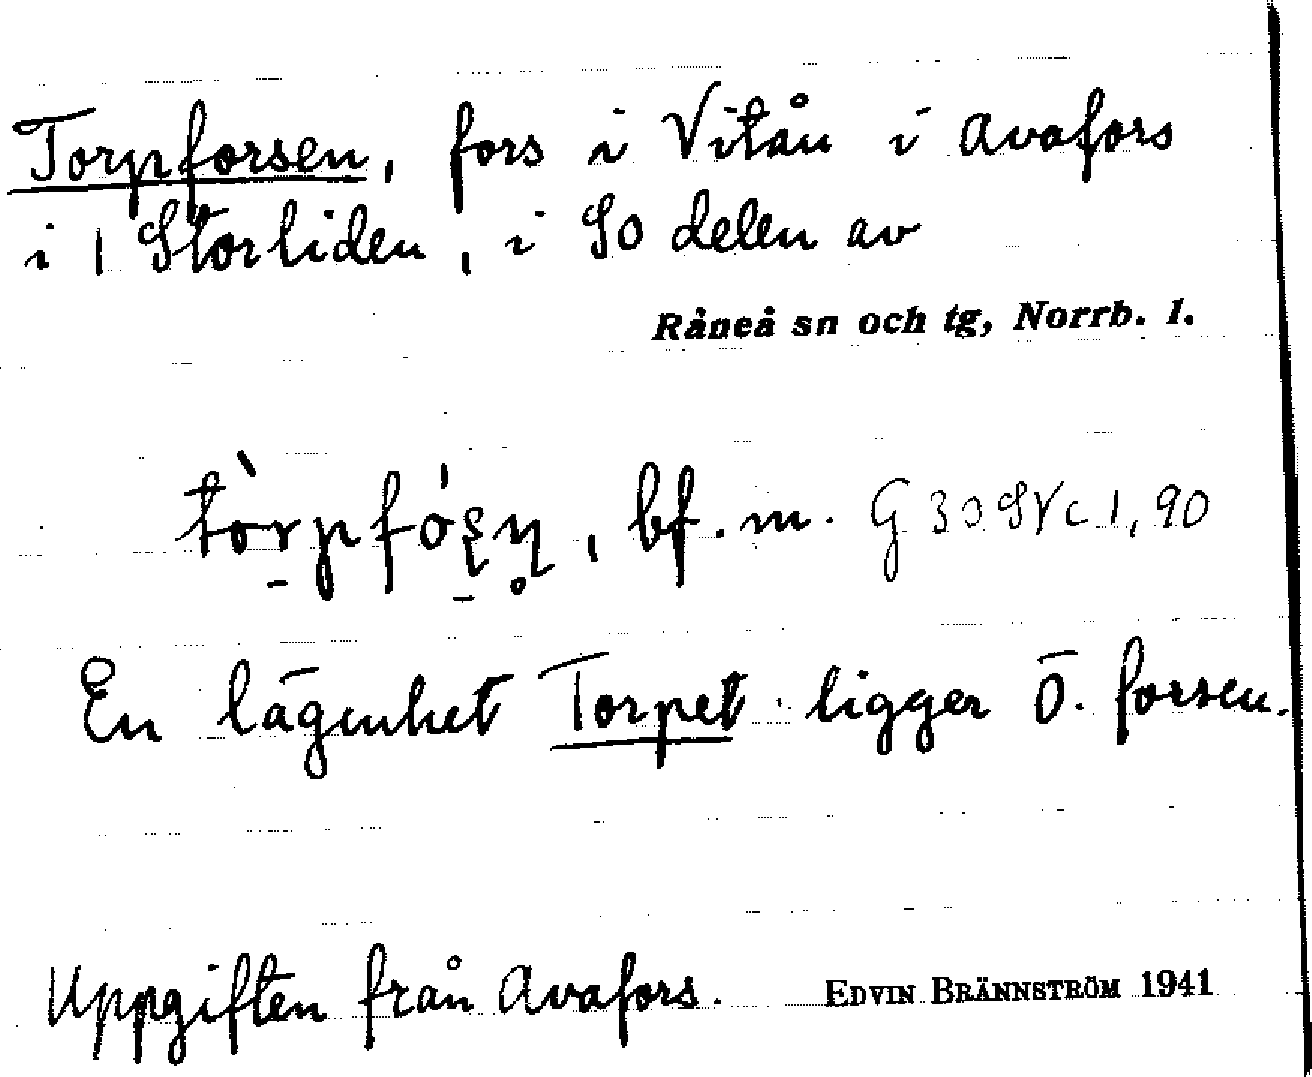 Torpforsen, fors i Vitån i Avafors
i 1 Storliden, i SO delen av
Råneå sn och tg, Norrb. l.
tòrpfóʂɳ̥, bf. m. G 30 SV c 1, 90
En lägenhet Torpet ligger Ö. forsen.
Uppgiften från Avafors. EDVIN BRÄNNSTRÖM 1941